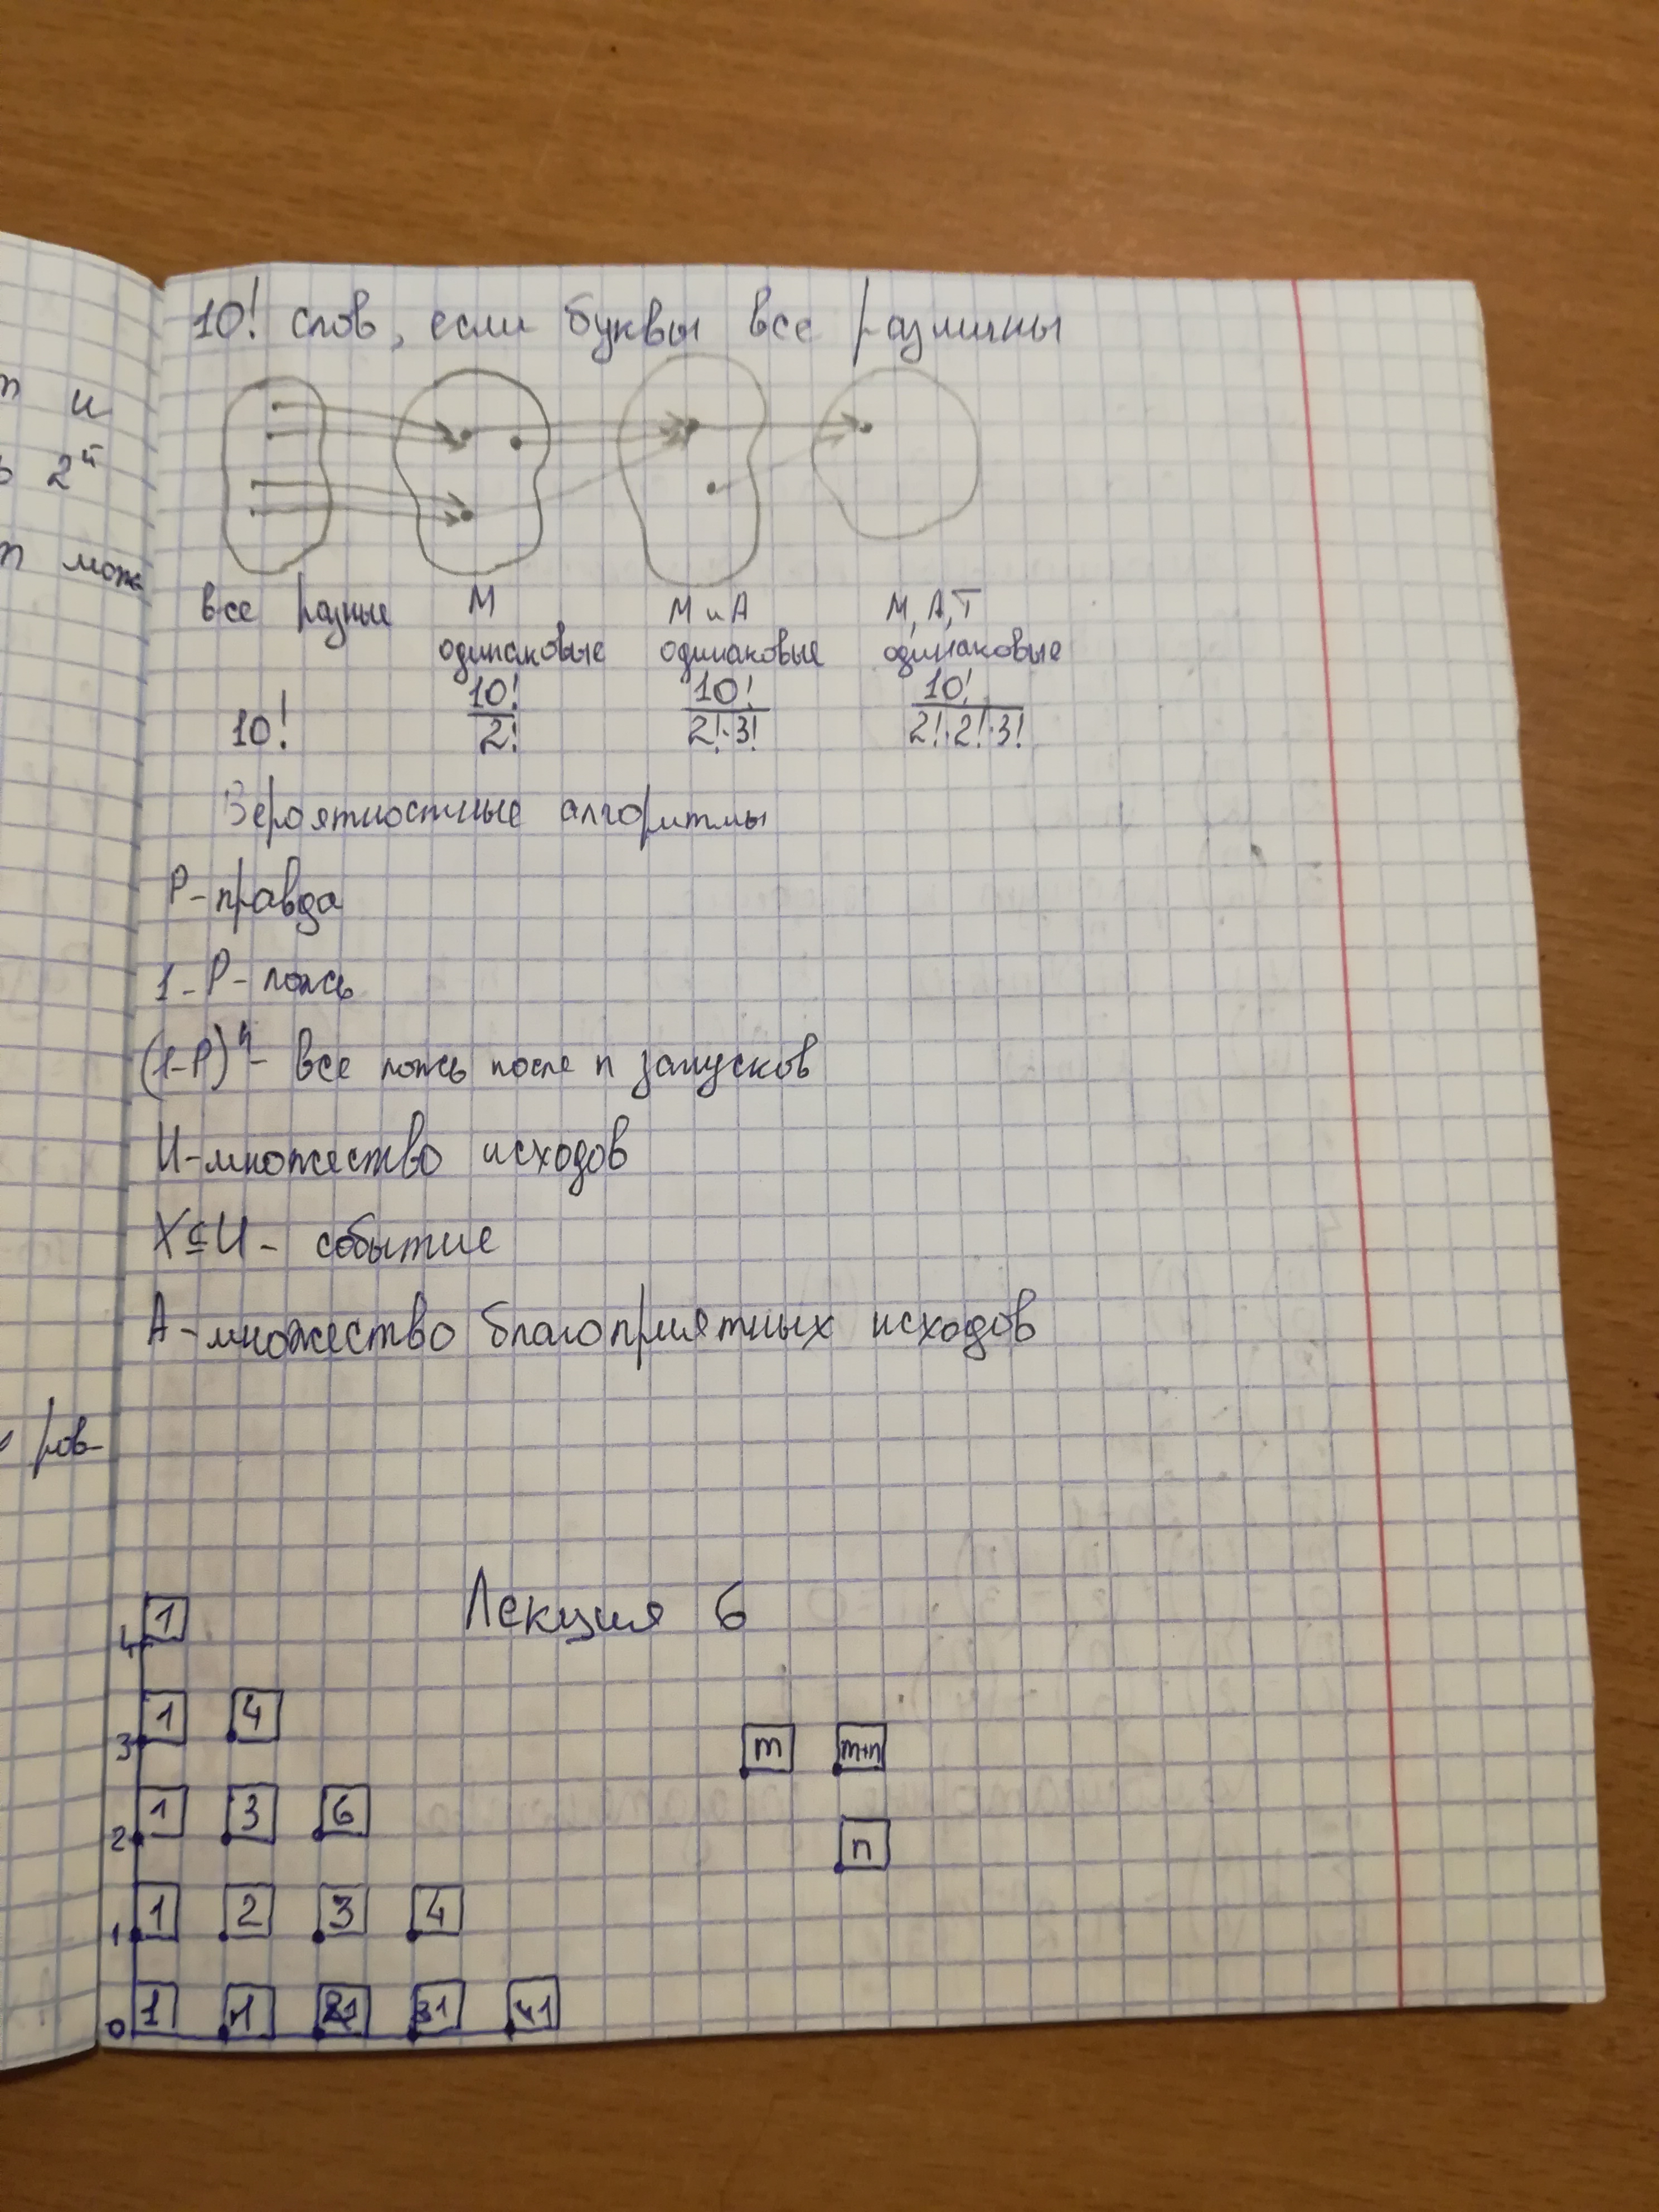 10! слов, если буквы все различны
все разные М М и А М, А, Т
одинаковые одинаковые одинаковые
10! 10!/2! 10!/(2!·3!) 10!/(2!·2!·3!)
Вероятностные алгоритмы
P-правда
1-P-ложь
(1-P)ⁿ- все ложь после n запусков
И-множество исходов
X⊆И- событие
А-множество благоприятных исходов
Лекция 6
4 1
3 1 4
2 1 3 6
1 1 2 3 4
0 1 1 1 1 1
m m+n
n
и
2ⁿ
рав-